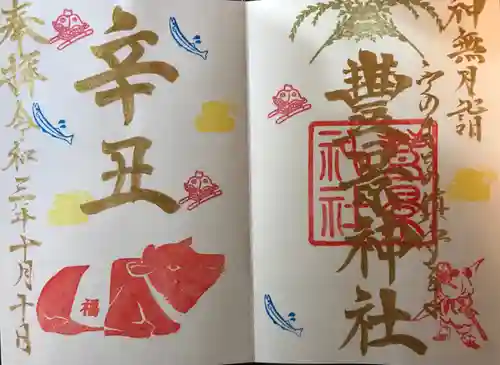 神無月詣
豐景神社
神社
辛丑
福
奉拝 令和三年十月十日